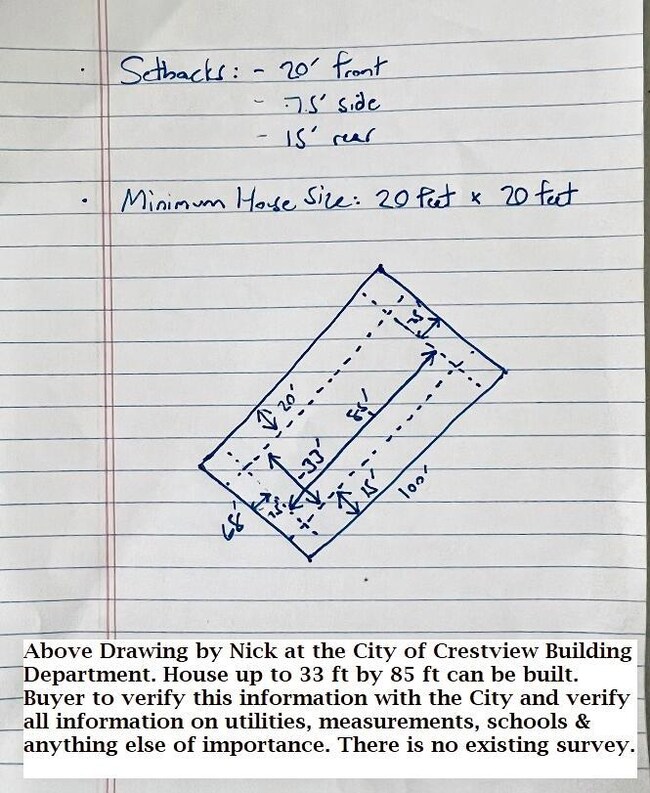 • Setbacks: - 20' front
- 7.5' side
- 15' rear
• Minimum House Size: 20 feet x 20 feet
7.5'
20'
85'
33'
15'
100'
7.5'
68'
Above Drawing by Nick at the City of Crestview Building
Department. House up to 33 ft by 85 ft can be built.
Buyer to verify this information with the City and verify
all information on utilities, measurements, schools &
anything else of importance. There is no existing survey.